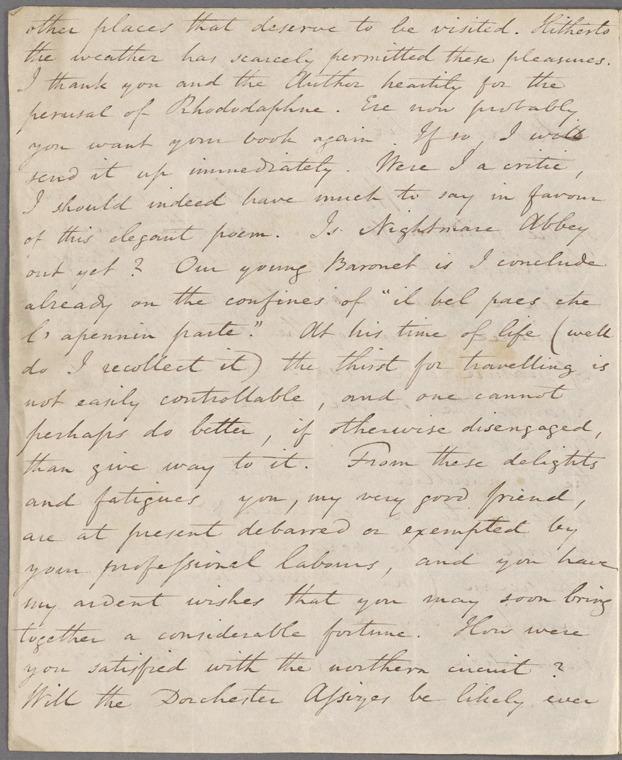 other places that deserve to be visited. Hitherto
the weather has scarcely permitted these pleasures.
I thank you and the Author heartily for the
perusal of Rhododaphne. Ere now probably
you want your book again. If so, I will
send it up immediately. Were I a critic,
I should indeed have much to say in favour
of this elegant poem. Is Nightmare Abbey
out yet? Our young Baronet is I conclude
already on the confines of "il bel paes che
l'apennin parte." At his time of life (well
do I recollect it) the thirst for travelling is
not easily controllable, and one cannot
perhaps do better, if otherwise disengaged,
than give way to it. From these delights
and fatigues you, my very good friend,
are at present debarred or exempted by
your professional labours, and you have
my ardent wishes that you may soon bring
together a considerable fortune. How were
you satisfied with the northern circuit?
Will the Dorchester Assizes be likely ever